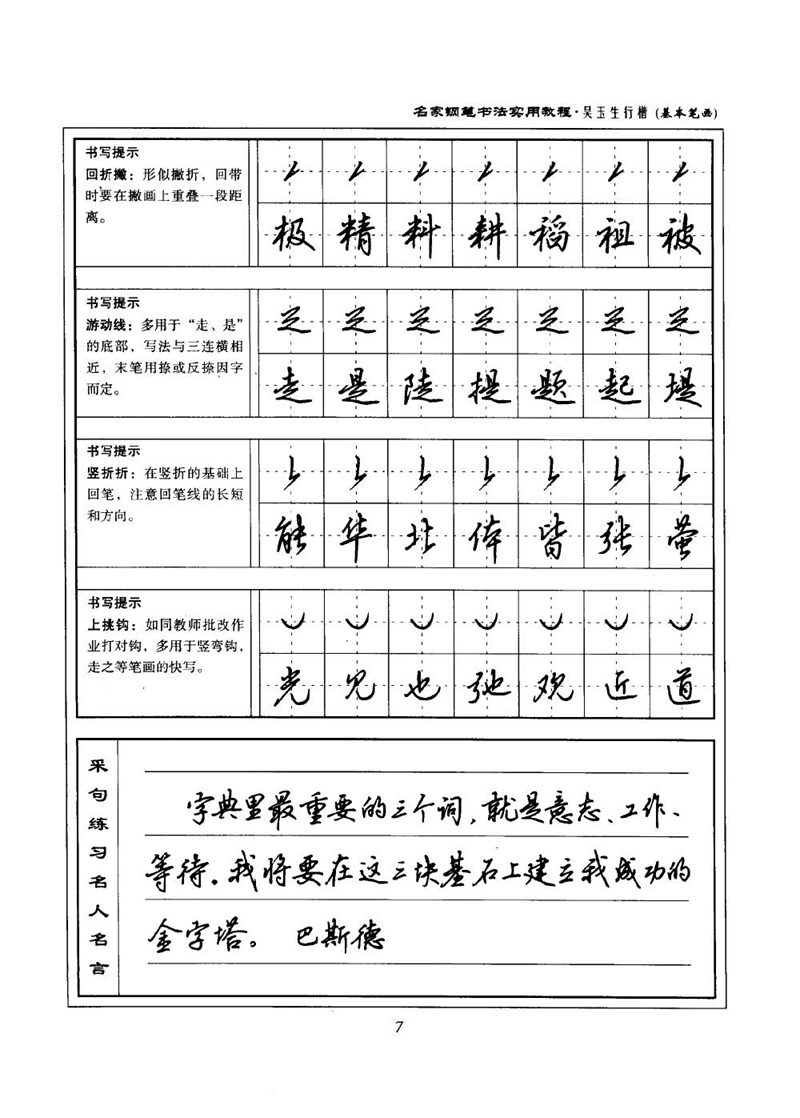 名家钢笔书法实用教程·吴玉生行楷（基本笔画）
书写提示
回折撇：形似撇折，回带
时要在撇画上重叠一段距
离。
极 精 料 耕 稻 祖 被
书写提示
游动线：多用于“走、是”
的底部，写法与三连横相
近，末笔用捺或反捺因字
而定。
走 是 陡 提 题 起 堤
书写提示
竖折折：在竖折的基础上
回笔，注意回笔线的长短
和方向。
能 华 北 体 皆 张 萤
书写提示
上挑钩：如同教师批改作
业打对钩，多用于竖弯钩，
走之等笔画的快写。
光 见 也 弛 观 近 道
采句练习名人名言
字典里最重要的三个词，就是意志、工作、
等待。我将要在这三块基石上建立我成功的
金字塔。 巴斯德
7